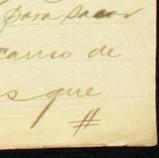 para sacar
carro de
s que
#